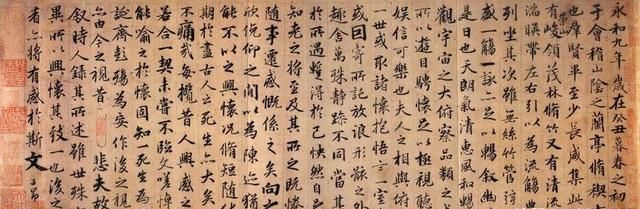 永和九年歲在癸丑暮春之初
于會稽山陰之蘭亭脩稧
也羣賢畢至少長咸集此
崇山
有峻領茂林脩竹又有清流
湍暎帶左右引以為流觴曲
列坐其次雖無絲竹管弦
盛一觴一詠亦足以暢叙幽
是日也天朗氣清惠風和暢
觀宇宙之大俯察品類之
所以遊目騁懷足以極視聽
娛信可樂也夫人之相與俯
一世或取諸懷抱悟言一室
或因寄所託放浪形骸之外
趣舍萬殊靜躁不同當其
於所遇蹔得於己怏然自
知老之將至及其所之既惓
隨事遷感慨係之矣向之
欣俛仰之間以為陳迹猶
能不以之興懷況脩短隨化
期於盡古人云死生亦大矣
不痛哉每攬昔人興感之
若合一契未嘗不臨文嗟悼
能喻之於懷固知一死生為
誕齊彭殤為妄作後之視
亦由今之視昔悲夫故
叙時人錄其所述雖世殊
異所以興懷其致一也後之
者亦將有感於斯文 子昂